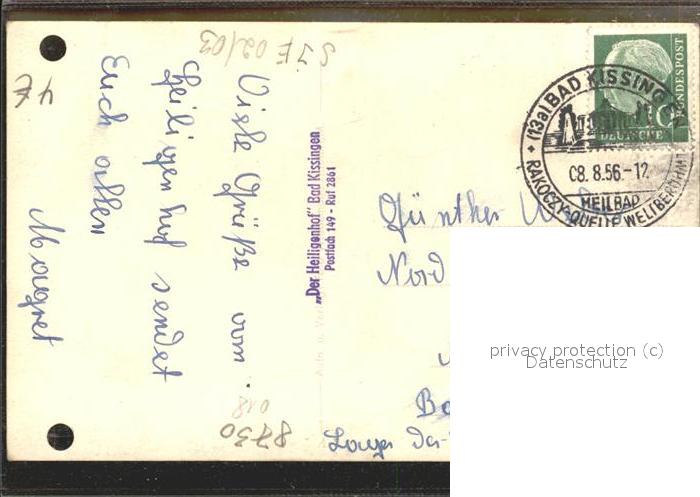 SJF 02/03
4E
Viele Grüße vom
Heiligenhof sendet
Euch allen
Margret
8730
018
„Der Heiligenhof" Bad Kissingen
Postfach 149 - Ruf 2861
Günther
Nord
DEUTSCHE BUNDESPOST
(13a) BAD KISSINGEN
08. 8.56-12
HEILBAD
RAKOCZY-QUELLE WELTBERÜHMT
privacy protection (c)
Datenschutz